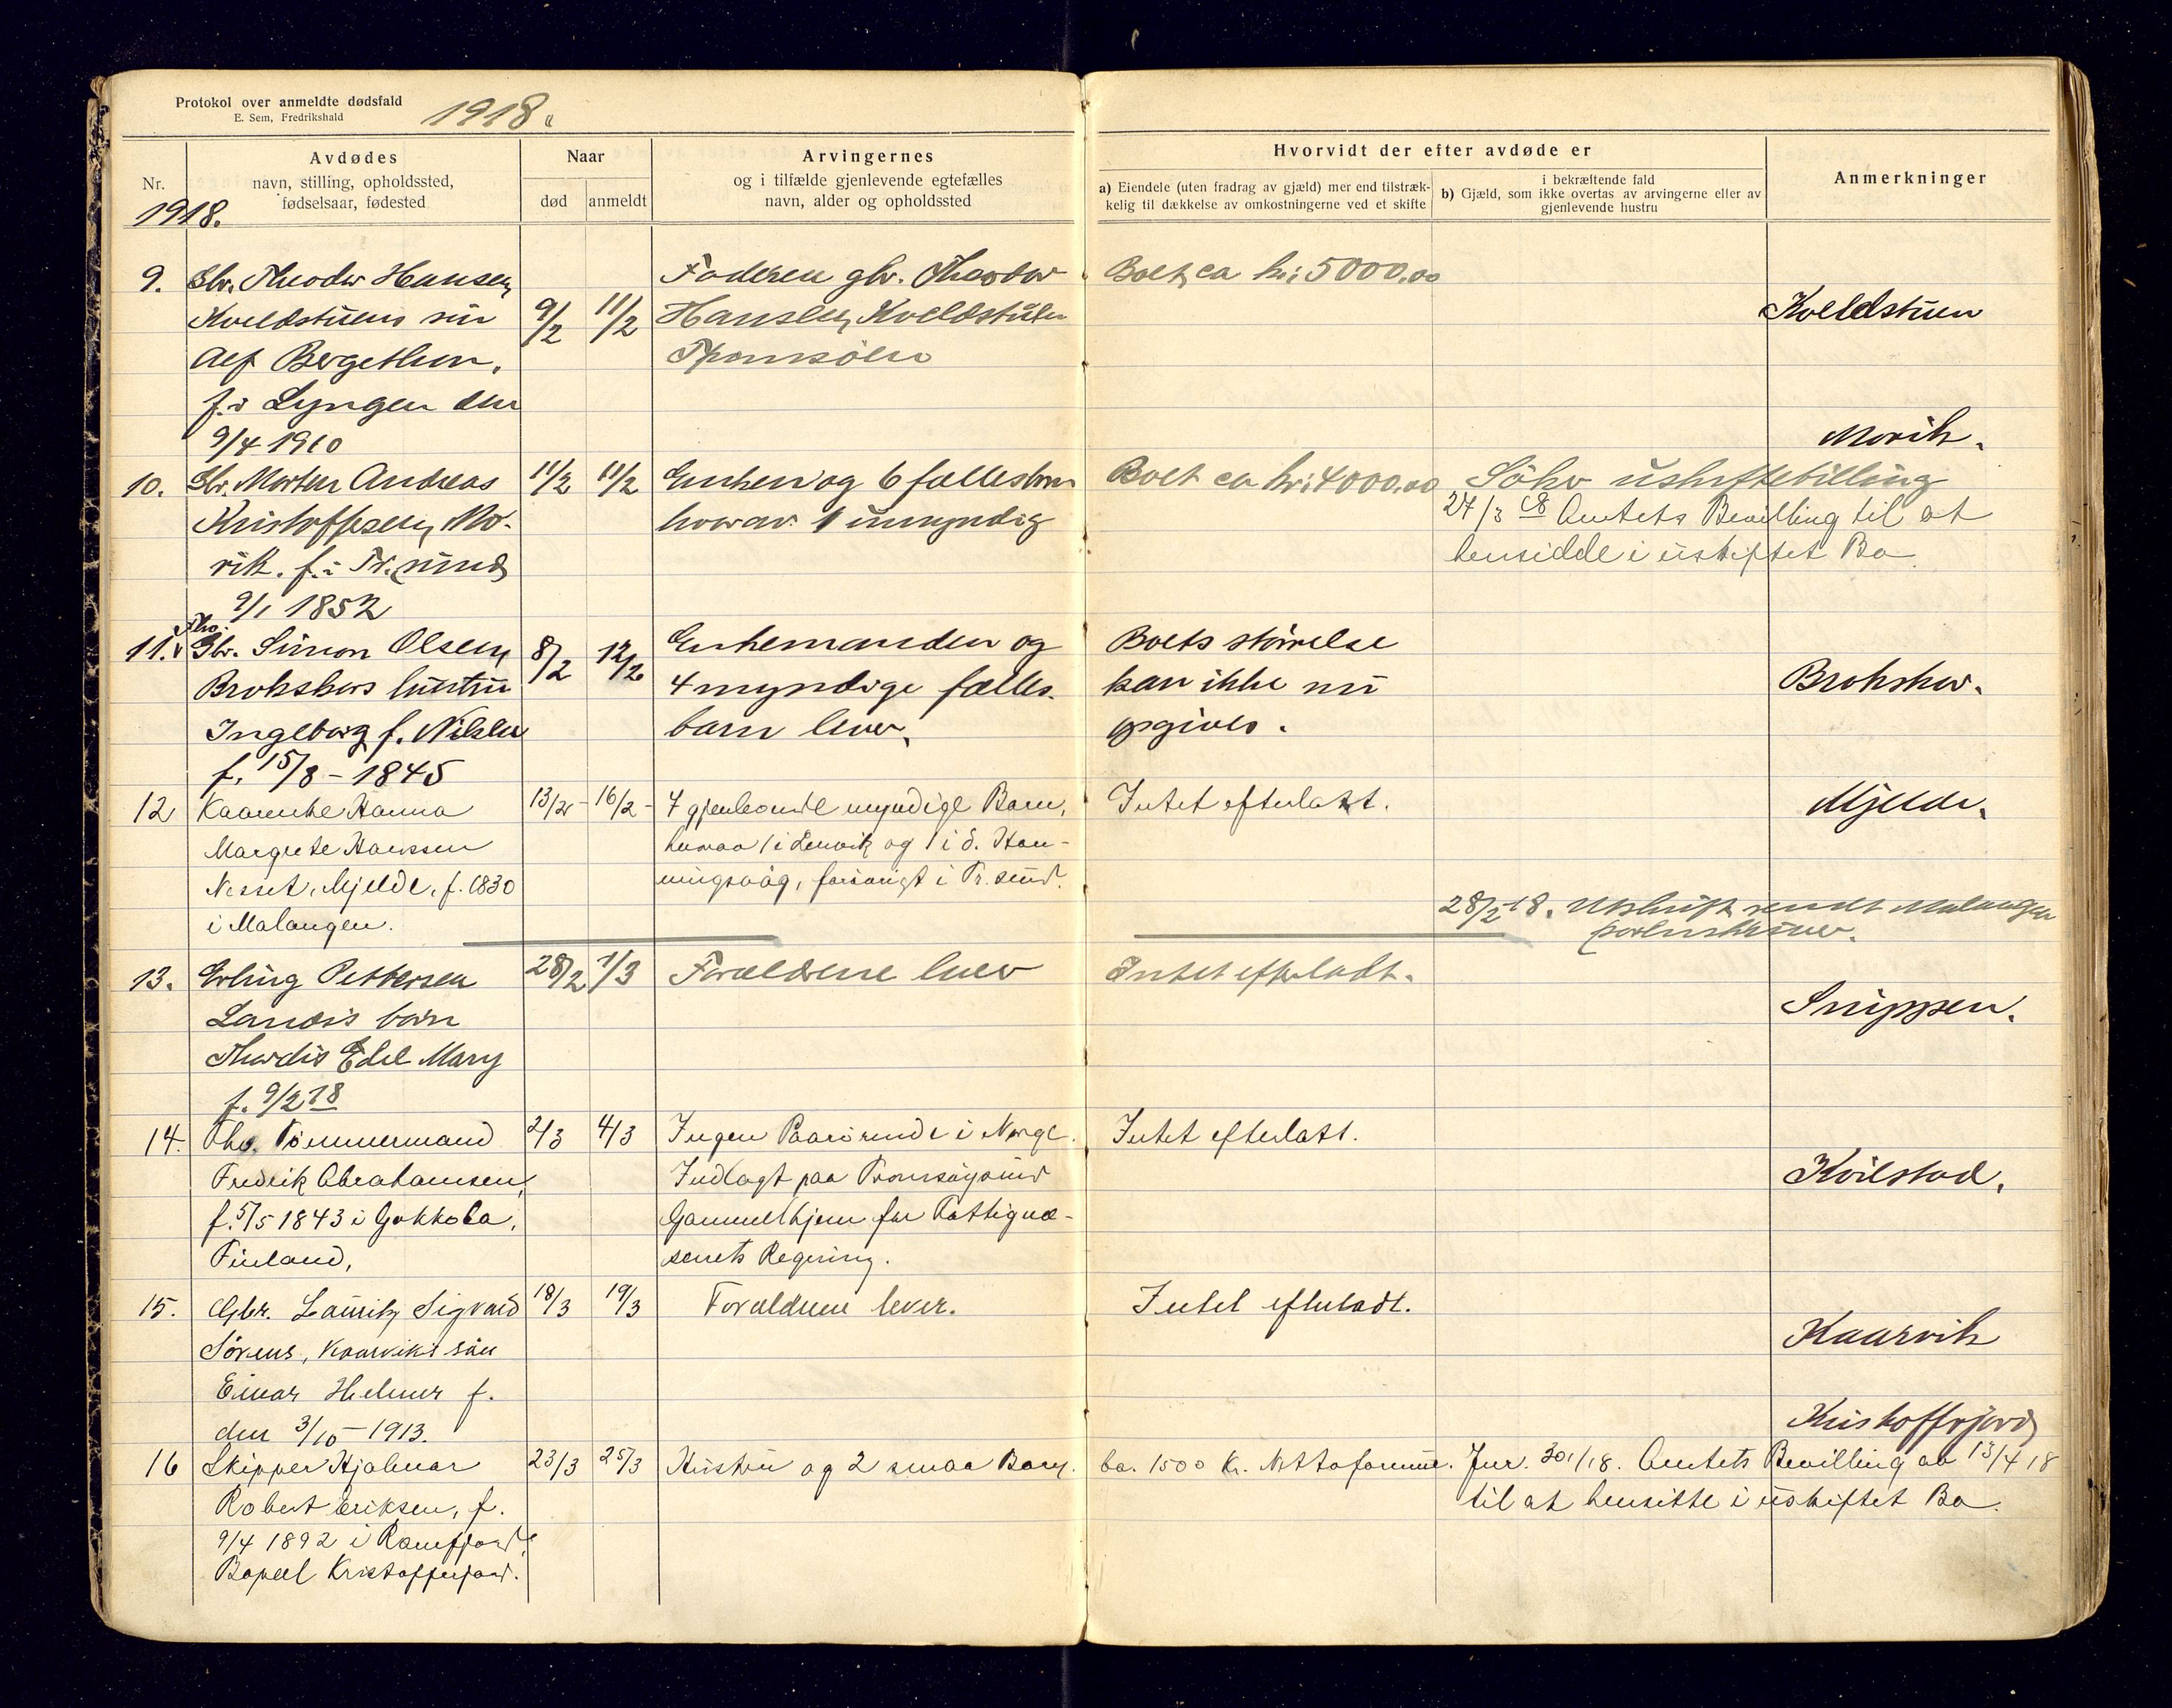 Protokol over anmeldte dødsfald
E. Sem, Fredrikshald
1918.
Nr.
1918.
Avdødes
navn, stilling, opholdssted,
fødselsaar, fødested
Naar
død
anmeldt
Arvingernes
og i tilfælde gjenlevende egtefælles
navn, alder og opholdssted
Hvorvidt der efter avdøde er
a) Eiendele (uten fradrag av gjæld) mer end tilstræk-
kelig til dækkelse av omkostningerne ved et skifte
i bekræftende fald
b) Gjæld, som ikke overtas av arvingerne eller av
gjenlevende hustru
Anmerkninger
9.
Gbr. Theodor Hansen
Kveldstuens sün
Alf Bergethon,
f. i Lyngen den
9/4 1910
9/2
11/2
Faderen gbr. Theodor
Hansen, Kveldstuen
Tromsøen
Boet, ca kr: 5000,00
Kveldstuen
10.
Gbr. Morten Andreas
Kristoffersen, Mo-
rik. f. i Tr.sund
9/1 1852
11/2
11/2
Enken og 6 fællesbarn
hvorav 1 umyndig
Boet ca kr: 4000,00
Søker uskiftebilling
27/3 18 Amtets Bevilling til at
hensidde i uskiftet Bo.
Morik.
11.
Fho.
Gbr. Simon Olsen
Brokskers hustru
Ingeborg f. Nilsen
f. 15/8 - 1845
8/2
12/2
Enkemanden og
4 myndige fælles-
barn lever.
Boets størrelse
kan ikke nu
opgives.
Broksker.
12
Kaarenke Hanna
Margrete Hanssen
Nesset, Mjelde, f. 1830
i Malangen.
13/2 -
16/2 -
7 gjenlevende myndige Barn,
hvoraa 1 i Lenvik og 1 i d. Hon-
ningsvåg, forøvrigt i Tr.sund.
Intet efterlatt.
28/2 18. Utskrift sendt Malangen
Mjelde.
13.
Erling Pettersen
Landis barn
Thordis Edel Mary
f. 9/2 18
28/2
1/3
Forældrene lever
Intet efterladt.
Snippen.
14.
Fho. Tømmermand
Fredrik Abrahamsen,
f. 5/5 1843 i Gakkola,
Finland,
2/3
4/3
Ingen Paarørende i Norge.
Indlagt paa Tromsøysund
Gammelhjem for Fattigvæ-
senets Regning.
Intet efterlatt.
Kvilstad.
15.
Gbr. Lauritz Sigvard
Sørens, Kaarviks søn
Einar Helmer f.
den 3/10 - 1913.
18/3
19/3
Forældrene lever.
Intet efterladt.
Kaarvik
16
Skipper Hjalmar
Robert Eriksen, f.
9/4 1892 i Ramfjord,
Bopæl Kristofferjord.
23/3
25/3
Hustru og 2 smaa Barn.
ca. 1500 Kr. Nettoformue.
Jnr. 301/18. Amtets Bevilling av 13/4 18
til at hensitte i uskiftet Bo.
Kristofferjord